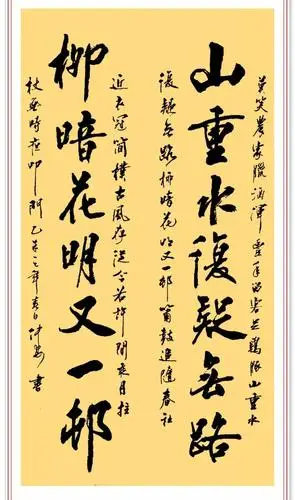 莫笑農家臘酒渾豐年留客足鷄豚山重水
山重水復疑無路
復疑無路柳暗花明又一邨簫鼓追隨春社
近衣冠簡樸古風存從今若許閒乘月拄
柳暗花明又一邨
杖無時夜叩門乙年春日書